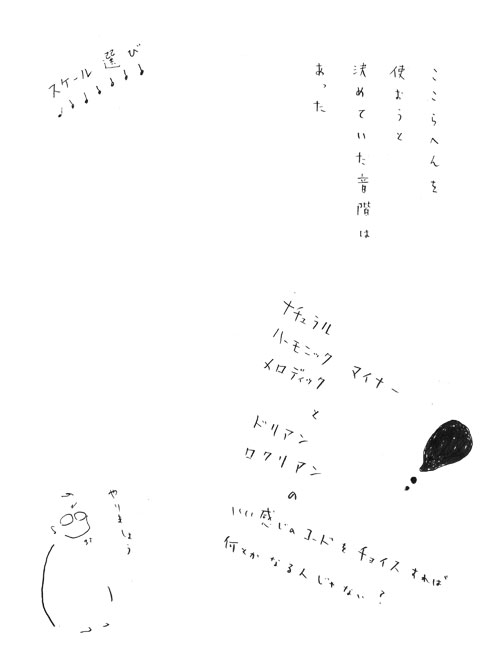 スケール選び
ここらへんを
使おうと
決めていた音階は
あった
ナチュラル
ハーモニック マイナー
メロディック
と
ドリアン
ロクリアン
の
いい感じのコードをチョイスすれば
何とかなる人じゃない?
やりましょう